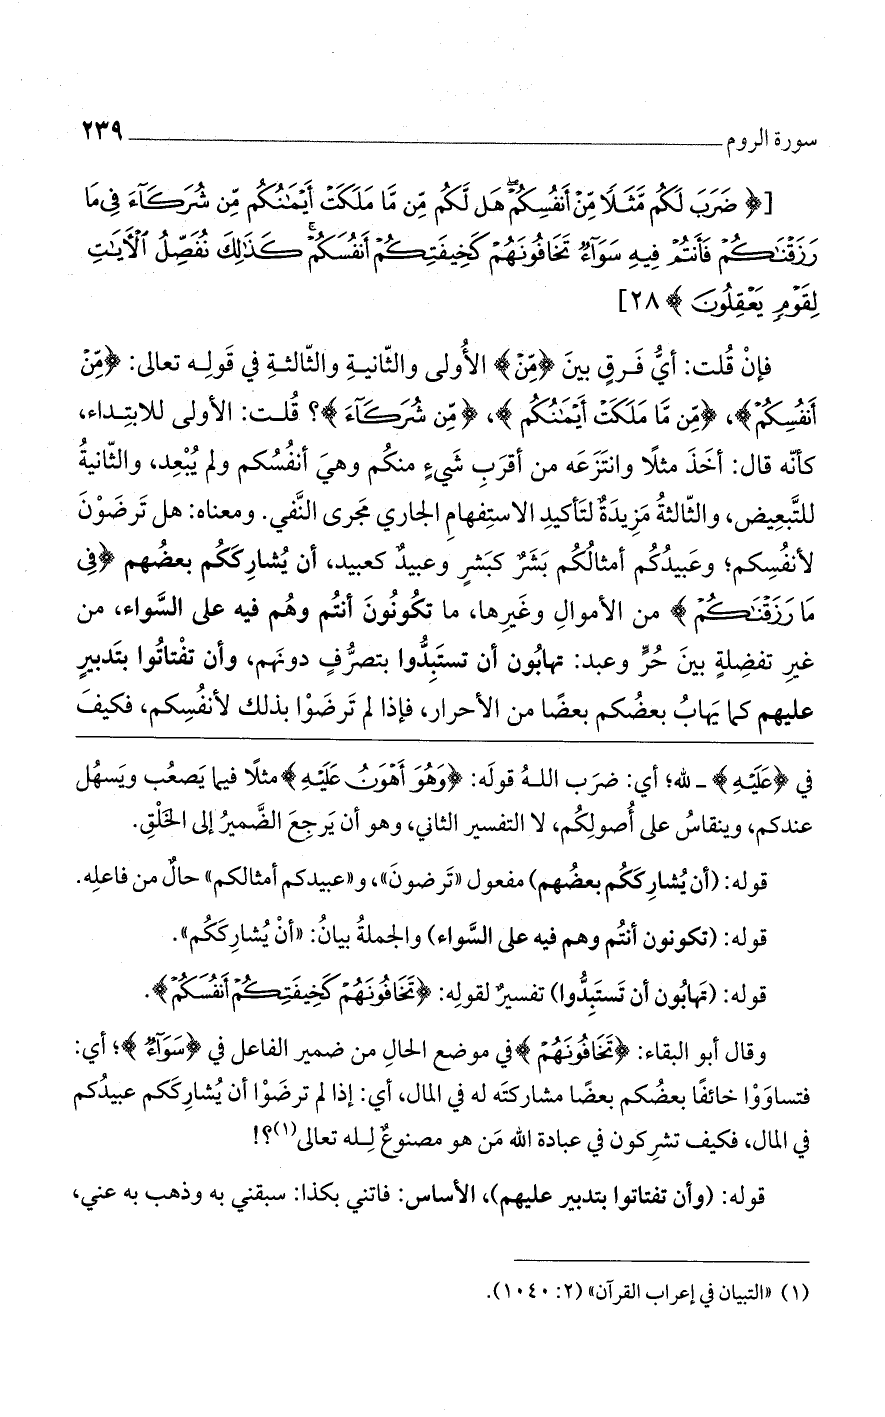 سورة الروم ٢٣٩
[﴿ ضَرَبَ لَكُم مَّثَلًا مِّنْ أَنفُسِكُمْ ۖ هَل لَّكُم مِّن مَّا مَلَكَتْ أَيْمَٰنُكُم مِّن شُرَكَآءَ فِى مَا
رَزَقْنَٰكُمْ فَأَنتُمْ فِيهِ سَوَآءٌ تَخَافُونَهُمْ كَخِيفَتِكُمْ أَنفُسَكُمْ ۚ كَذَٰلِكَ نُفَصِّلُ ٱلْءَايَٰتِ
لِقَوْمٍ يَعْقِلُونَ ﴾ ٢٨]
فإنْ قُلت: أيُّ فَرقٍ بينَ ﴿مِّنْ﴾ الأُولى والثّانيةِ والثّالثةِ في قَولِه تعالى: ﴿مِّنْ
أَنفُسِكُمْ﴾، ﴿مِّن مَّا مَلَكَتْ أَيْمَٰنُكُم ﴾، ﴿مِّن شُرَكَآءَ ﴾؟ قُلت: الأولى للابتداء،
كأنّه قال: أخَذَ مثلًا وانتَزَعَه من أقرَبِ شَيءٍ منكُم وهيَ أنفُسُكم ولم يُبْعِد، والثانيةُ
للتَّبعِيض، والثّالثةُ مَزِيدَةٌ لتَأكيدِ الاستِفهامِ الجاري مَجرى النَّفي. ومعناه: هل تَرضَوْنَ
لأنفُسِكم؛ وعَبيدُكُم أمثالُكُم بَشَرٌ كبَشرٍ وعبيدٌ كعبيد، أن يُشارِكَكُم بعضُهم ﴿فِى
مَا رَزَقْنَٰكُمْ ﴾ من الأموالِ وغَيرِها، ما تكُونُونَ أنتُم وهُم فيه على السَّواء، من
غيرِ تفضِلةٍ بينَ حُرٍّ وعبد: تهابُون أن تستَبِدُّوا بتصرُّفٍ دونَهم، وأن تفْتاتُوا بتَدبيرٍ
عليهم كما يَهابُ بعضُكم بعضًا من الأحرار، فإذا لم تَرضَوْا بذلك لأنفُسِكم، فكيفَ
في ﴿عَلَيْهِ ﴾ ـ لله؛ أي: ضرَب اللهُ قولَه: ﴿وَهُوَ أَهْوَنُ عَلَيْهِ ﴾ مثلًا فيما يَصعُب ويَسهُل
عندكم، وينقاسُ على أُصولِكُم، لا التفسير الثاني، وهو أن يَرجِعَ الضَّميرُ إلى الخَلْقِ.
قوله: (أن يُشارِكَكُم بعضُهم) مفعول «تَرضونَ»، و«عبيدكم أمثالكم» حالٌ من فاعلِه.
قوله: (تكونون أنتُم وهم فيه على السَّواء) والجملةُ بيانُ: «أنْ يُشارِكَكُم».
قوله: (تهابُون أن تَستَبِدُّوا) تفسيرٌ لقولِه: ﴿تَخَافُونَهُمْ كَخِيفَتِكُمْ أَنفُسَكُمْ﴾.
وقال أبو البقاء: ﴿تَخَافُونَهُمْ ﴾ في موضع الحالِ من ضمير الفاعل في ﴿سَوَآءٌ ﴾؛ أي:
فتساوَوْا خائفًا بعضُكم بعضًا مشاركتَه له في المال، أي: إذا لم ترضَوْا أن يُشارِكَكم عبيدُكم
في المال، فكيف تشرِكون في عبادة الله مَن هو مصنوعٌ لله تعالى(١)؟!
قوله: (وأن تفتاتوا بتدبير عليهم)، الأساس: فاتني بكذا: سبقني به وذهب به عني،
(١) «التبيان في إعراب القرآن» (٢: ١٠٤٠).